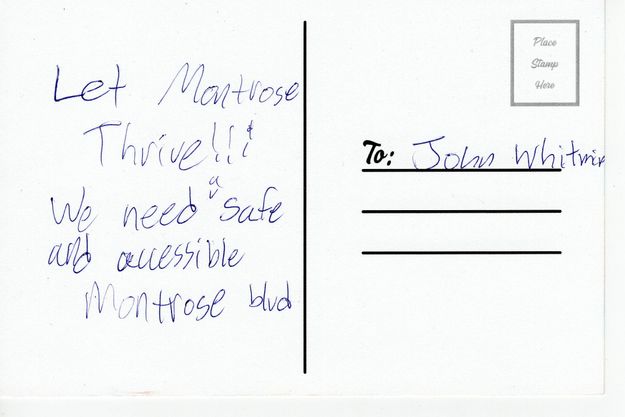 Let Montrose
Thrive!!!
We need a safe
and accessible
Montrose blvd
Place
Stamp
Here
To: John Whitmire